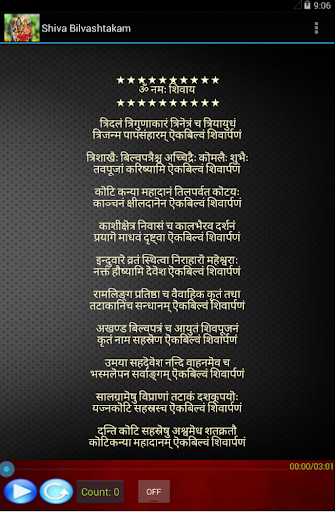 9:06
Shiva Bilvashtakam
★★★★★★★★★★
ॐ नमः शिवाय
★★★★★★★★★★
त्रिदलं त्रिगुणाकारं त्रिनेत्रं च त्रियायुधं
त्रिजन्म पापसंहारम् ऎकबिल्वं शिवार्पणं
त्रिशाखैः बिल्वपत्रैश्च अच्चिद्रैः कॊमलैः शुभैः
तवपूजां करिष्यामि ऎकबिल्वं शिवार्पणं
कॊटि कन्या महादानं तिलपर्वत कॊटयः
काञ्चनं क्षीलदानेन ऎकबिल्वं शिवार्पणं
काशीक्षेत्र निवासं च कालभैरव दर्शनं
प्रयागॆ माधवं दृष्ट्वा ऎकबिल्वं शिवार्पणं
इन्दुवारॆ व्रतं स्थित्वा निराहारॊ महॆश्वराः
नक्तं हौष्यामि दॆवॆश ऎकबिल्वं शिवार्पणं
रामलिङ्ग प्रतिष्ठा च वैवाहिक कृतं तधा
तटाकानिच सन्धानम् ऎकबिल्वं शिवार्पणं
अखण्ड बिल्वपत्रं च आयुतं शिवपूजनं
कृतं नाम सहस्रॆण ऎकबिल्वं शिवार्पणं
उमया सहदॆवॆश नन्दि वाहनमॆव च
भस्मलॆपन सर्वाङ्गम् ऎकबिल्वं शिवार्पणं
सालग्रामॆषु विप्राणां तटाकं दशकूपयॊः
यज्नकॊटि सहस्रस्च ऎकबिल्वं शिवार्पणं
दन्ति कॊटि सहस्रॆषु अश्वमॆध शतक्रतौ
कॊटिकन्या महादानम् ऎकबिल्वं शिवार्पणं
00:00/03:01
Count: 0
OFF